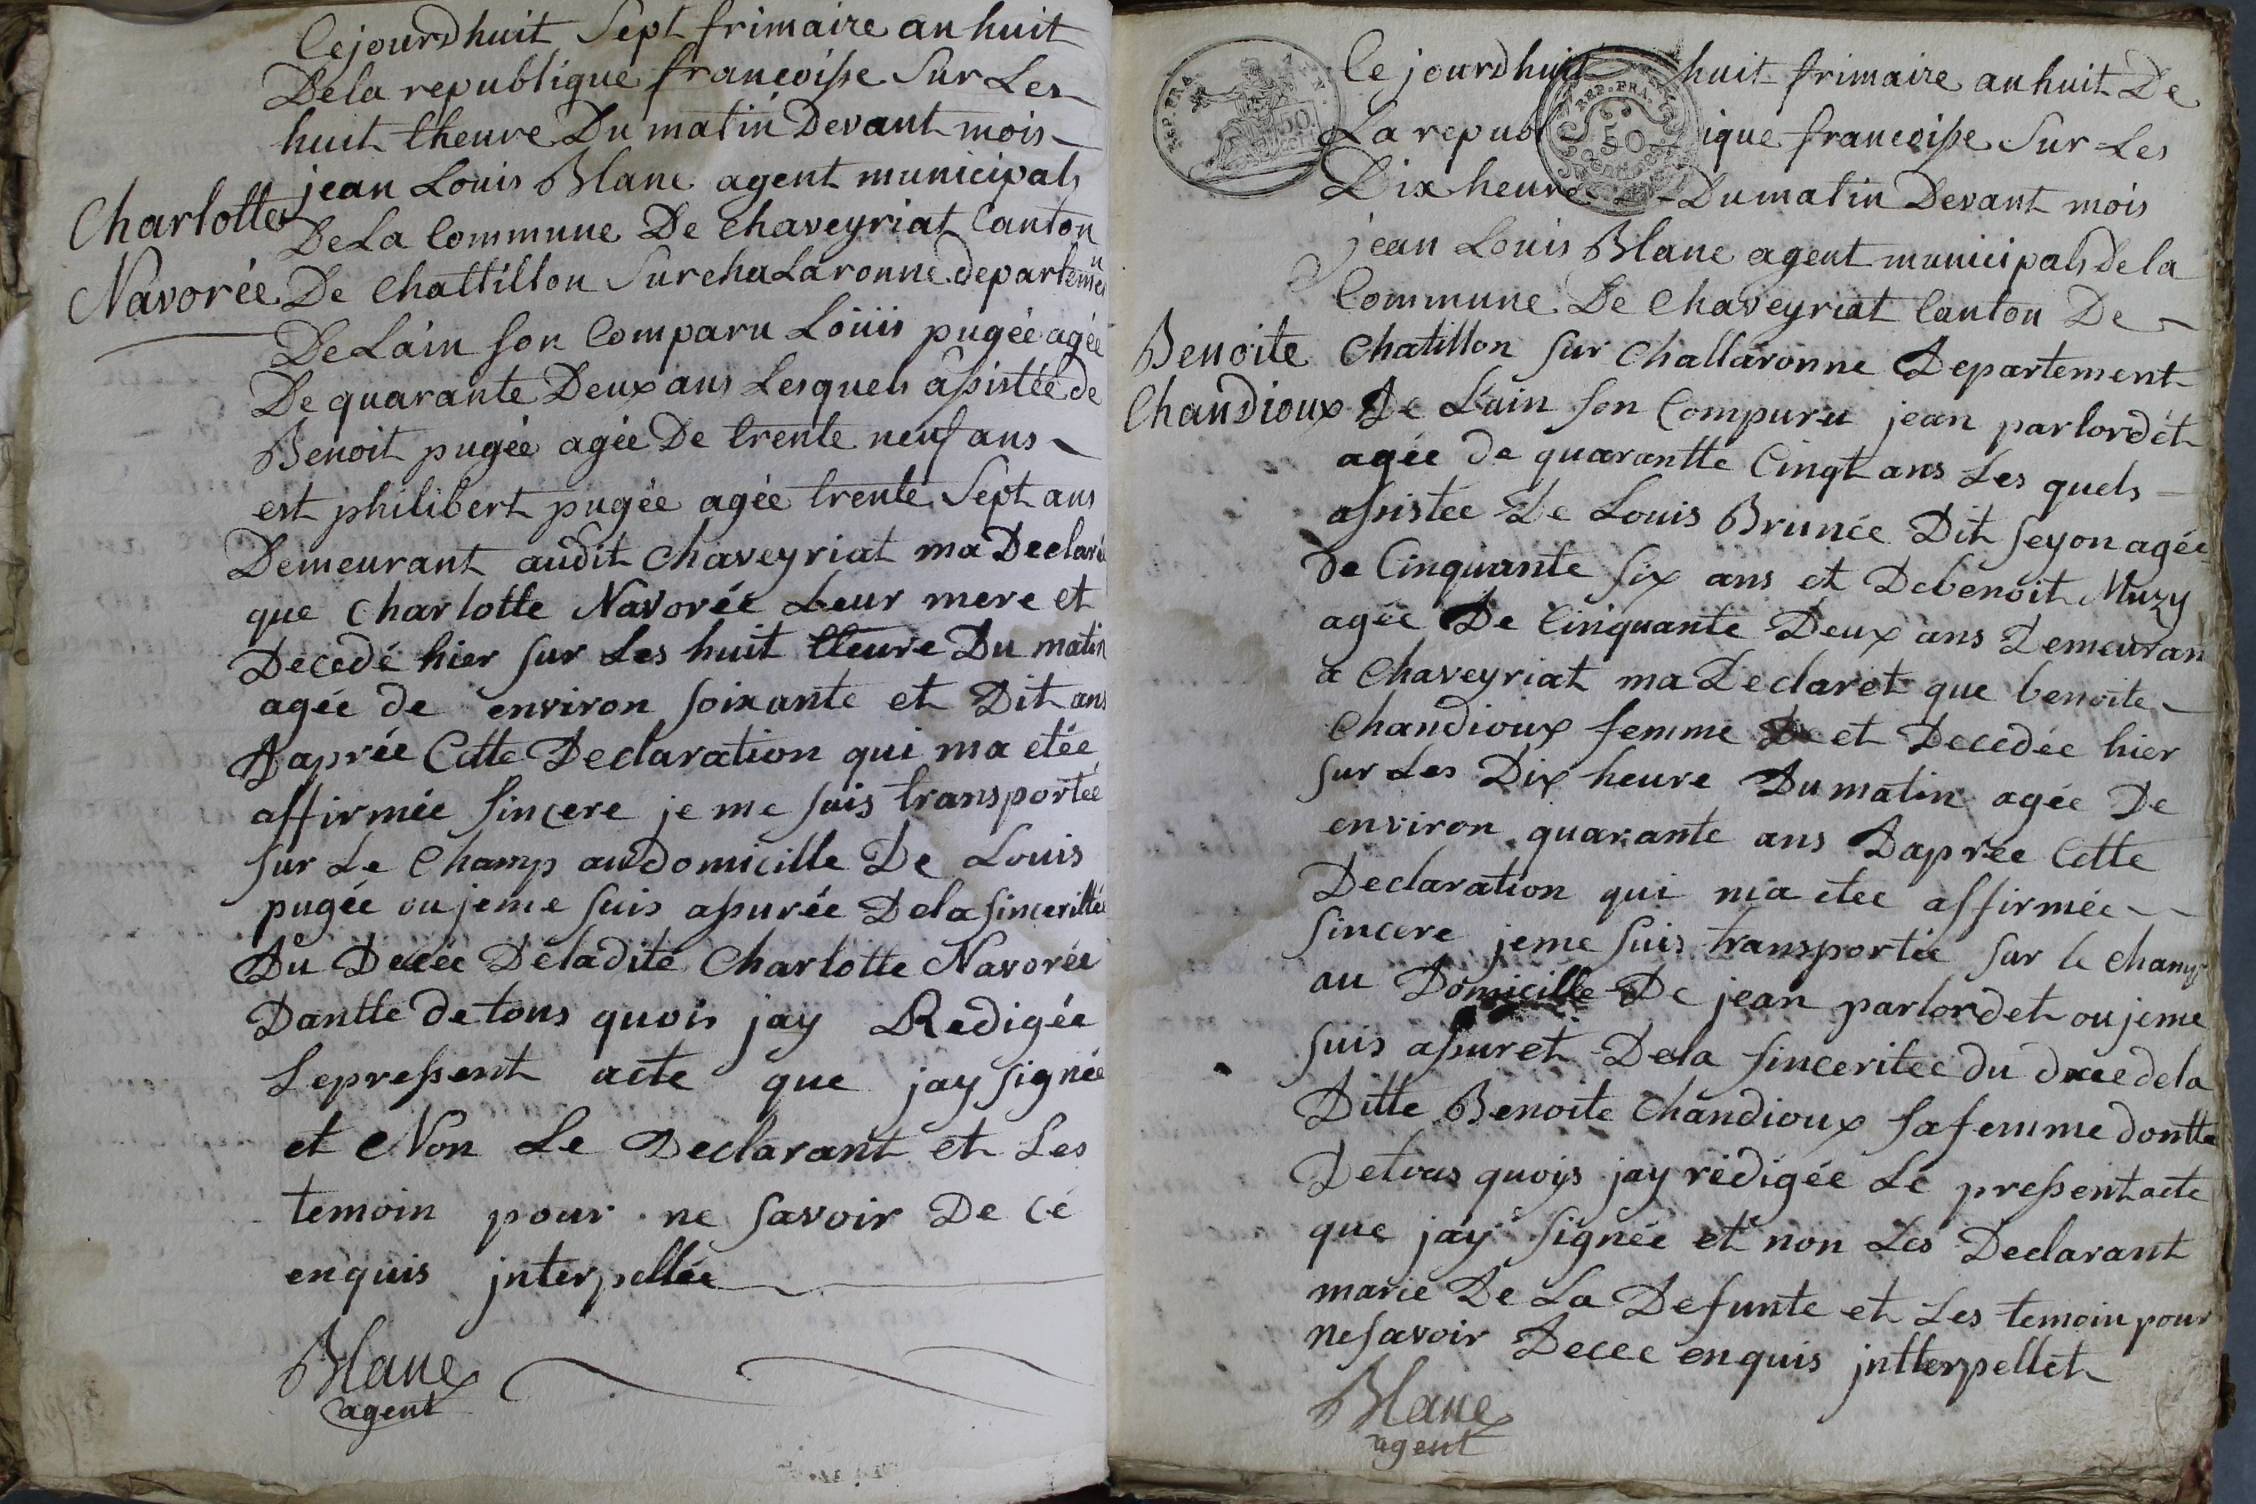 Cejourdhuit Sept frimaire an huit
Dela republique francoisse Sur Les
huit theure Du matin Devant mois
jean Louis Blanc agent municipals
Charlotte
Navorée
De La Commune De chaveyriat Canton
De Chattillon Surchalaronne departemen
De Lain son Comparu Loüis pugée agée
De quarante Deux ans Lesquels assistée de
Benoit pugée agée De trente neuf ans
est philibert pugée agée trente Sept ans
Demeurant audit Chaveyriat ma Declaré
que Charlotte Navorée Leur mere et
Decedé hier sur Les huit theure Du matin
agée de environ soixante et Dit ans
Daprée Cette Declaration qui ma etée
affirmée Sincere je me suis transportée
sur Le Champ au domicille De Louis
pugée ou jeme suis assurée Dela sincerittée
Du Decée Deladite Charlotte Navorée
Dantte de tous quois jay Redigée
Lepressent acte que jay signée
et Non Le Declarant et Les
temoin pour ne savoir De cé
enquis jnterpellée
Blanc
agent
REP. FRA.
50
REP. FRA.
50
Ce jourdhuit huit frimaire an huit De
La republique francoisse Sur Les
Dix heure Du matin Devant mois
jean Louis Blanc agent municipals De la
Commune De Chaveyriat Canton De
Benoite
Chandioux
Chatillon sur Challaronne Departement
De Lain son Compuru jean parlordét
agée de quarantte Cingt ans Les quels
assistee De Louis Brunée Dit seyon agée
de Cinquante six ans et Debenoit Muzy
agée De Cinquante Deux ans Demeuran
a Chaveyriat ma Declaret que benoite
Chandioux femme De et Decedée hier
sur Les Dix heure Du matin agée De
environ quarante ans Daprée Cette
Declaration qui ma etee affirmée
sincere jeme suis transportée sur le champ
au Domicille De jean parlordet ou jeme
suis assuret Dela sinceritee du decee dela
Ditte Benoite Chandioux sa femme dontte
Detous quoijs jay rédigée Le pressent acte
que jay signée et non Les Declarant
marie De La Defunte et Les temoin pour
ne savoir Decee enquis jntterpellet
Blanc
agent